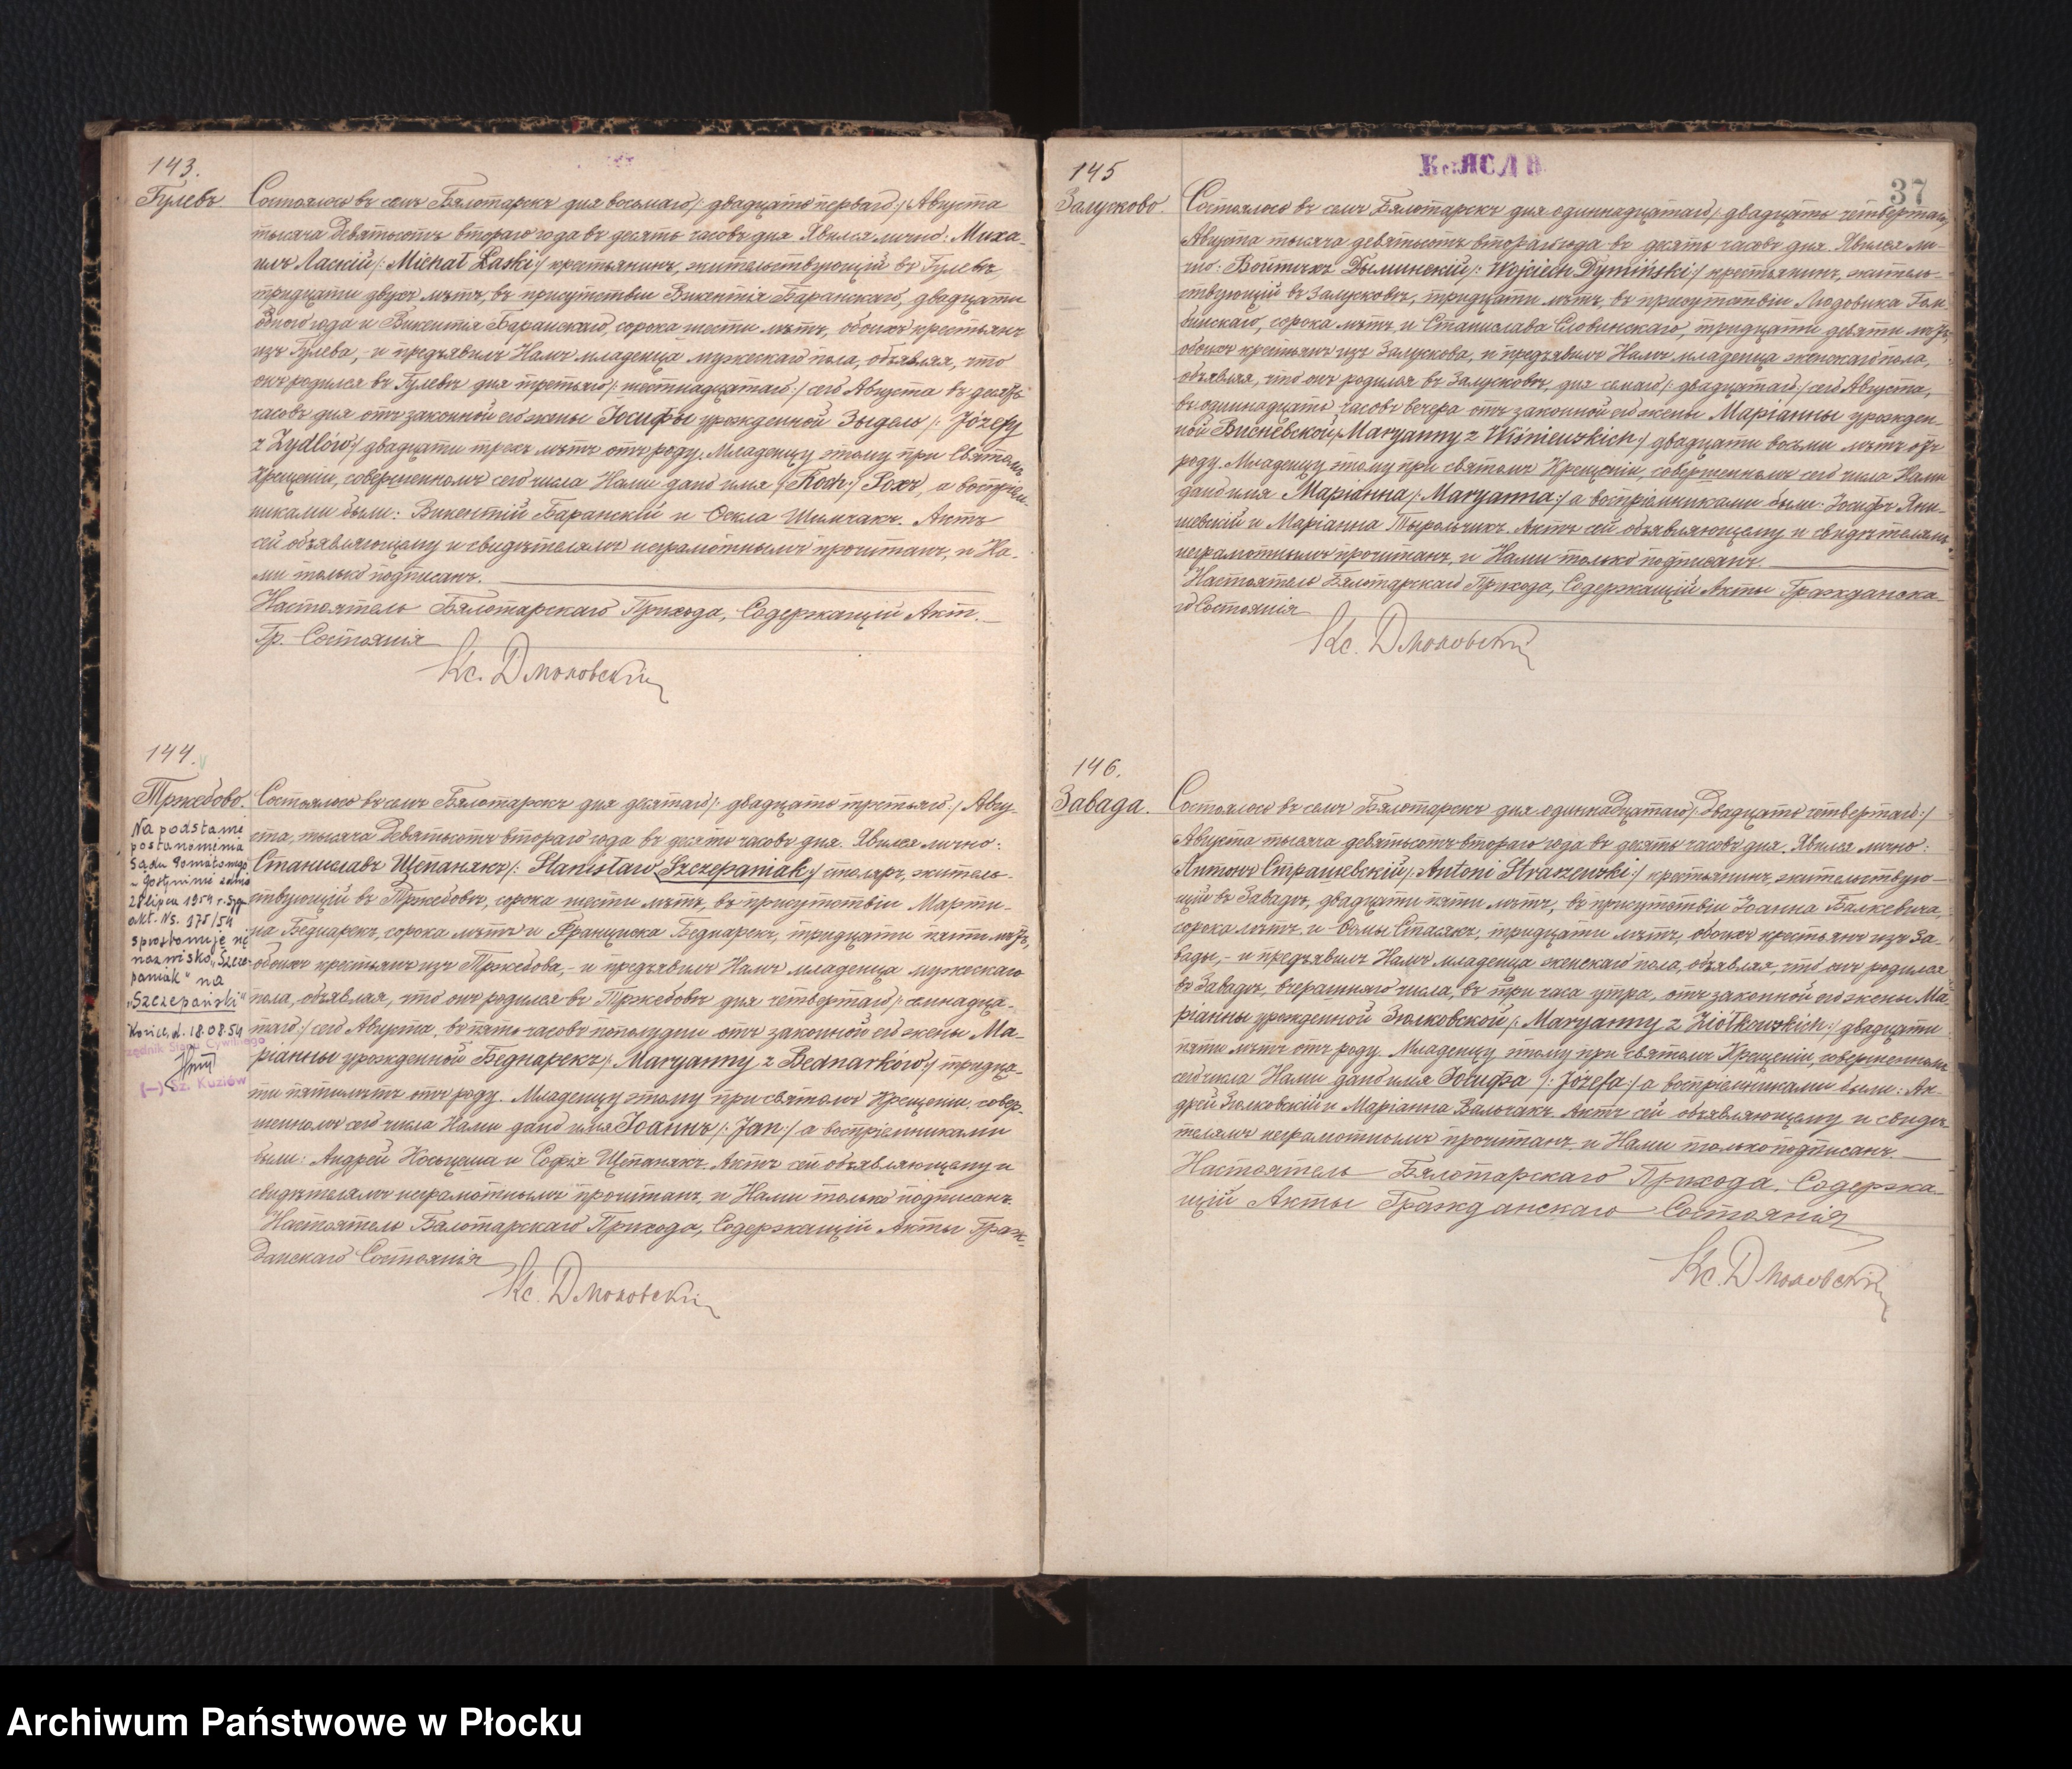 143.
Гулевъ.
Состоялось въ селѣ Бялотарскѣ дня восьмаго /: двадцать перваго :/ Августа
тысяча девятьсотъ втораго года въ десять часовъ дня. Явился лично: Миха-
илъ Ласкій /: Michał Łaski :/ крестьянинъ, жительствующій въ Гулевѣ,
тридцати двухъ лѣтъ, въ присутствіи Викентія Баранскаго, двадцати
одного года и Викентія Баранскаго, сорока шести лѣтъ, обоихъ крестьянъ
изъ Гулева, - и предъявилъ Намъ младенца мужескаго пола, объявляя, что
онъ родился въ Гулевѣ дня третьяго /: шестнадцатаго :/ сего Августа въ десять
часовъ дня отъ законной его жены Іосифы урожденной Зыдель /: Józefy
z Zydlów :/ двадцати трехъ лѣтъ отъ роду. Младенцу этому при Святомъ
Крещеніи, совершенномъ сего числа Нами дано имя /: Roch :/ Рохъ, а воспріем-
никами были: Викентій Баранскій и Ѳекла Шимчакъ. Актъ
сей объявляющему и свидѣтелямъ неграмотнымъ прочитанъ, и На-
ми только подписанъ.
Настоятель Бялотарскаго Прихода, Содержащій Акт.
Гр. Состоянія
Кс. Дмоховскій
144.
Тржебово.
Na podstawie
postanowienia
Sądu Powiatowego
w Gostyninie z dnia
28 lipca 1954 r. Syg.
akt. Ns. 175/54
sprostowuje się
nazwisko „Szcze-
paniak" na
„Szczepański"
d. 18.08.54
Urzędnik Stanu Cywilnego
(-) Sz. Kuziów
Состоялось въ селѣ Бялотарскѣ дня десятаго /: двадцать третьяго :/ Авгу-
ста, тысяча девятьсотъ втораго года въ десять часовъ дня. Явился лично:
Станиславъ Щепанякъ /: Stanisław Szczepaniak :/ столяръ, житель-
ствующій въ Тржебовѣ, сорока шести лѣтъ, въ присутствіи Марти-
на Беднарекъ, сорока лѣтъ и Франциска Беднарекъ, тридцати пяти лѣтъ,
обоихъ крестьянъ изъ Тржебова, - и предъявилъ Намъ младенца мужескаго
пола, объявляя, что онъ родился въ Тржебовѣ дня четвертаго /: семнадца-
таго :/ сего Августа, въ пять часовъ пополудни отъ законной его жены Ма-
ріанны урожденной Беднарекъ /: Maryanny z Bednarków :/ тридца-
ти пяти лѣтъ отъ роду. Младенцу этому при святомъ Крещеніи, совер-
шенномъ сего числа Нами дано имя Іоаннъ /: Jan :/ а воспріемниками
были: Андрей и Софія Щепанякъ. Актъ сей объявляющему и
свидѣтелямъ неграмотнымъ прочитанъ, и Нами только подписанъ.
Настоятель Бялотарскаго Прихода, Содержащій Акты Граж-
данскаго Состоянія
Кс. Дмоховскій
37
145
Залусково.
Состоялось въ селѣ Бялотарскѣ дня одиннадцатаго /: двадцать четвертаго :/
Августа тысяча девятьсотъ втораго года въ десять часовъ дня. Явился ли-
чно: Войтѣхъ Дыминскій /: Wojciech Dymiński :/ крестьянинъ, житель-
ствующій въ Залусковѣ, тридцати лѣтъ, въ присутствіи Людовика Гем-
бинскаго, сорока лѣтъ, и Станислава Словинскаго, тридцати девяти лѣтъ,
обоихъ крестьянъ изъ Залускова, и предъявилъ Намъ младенца женскаго пола,
объявляя, что онъ родился въ Залусковѣ, дня седьмаго /: двадцатаго :/ сего Августа,
въ одиннадцать часовъ вечера отъ законной его жены Маріанны урожден-
ной Висневской /: Maryanny z Wiśniewskich :/ двадцати восьми лѣтъ отъ
роду. Младенцу этому при святомъ Крещеніи, совершенномъ сего числа Нами
дано имя Маріанна /: Maryanna :/ а воспріемниками были: Іосифъ Яни-
шевскій и Маріанна Тырольчикъ. Актъ сей объявляющему и свидѣтелямъ
неграмотнымъ прочитанъ, и Нами только подписанъ.
Настоятель Бялотарскаго Прихода, Содержащій Акты Гражданска-
го Состоянія
Кс. Дмоховскій
146.
Завада.
Состоялось въ селѣ Бялотарскѣ дня одиннадцатаго /: двадцать четвертаго :/
Августа тысяча девятьсотъ втораго года въ десять часовъ дня. Явился лично:
Антонъ Страшевскій /: Antoni Straszewski :/ крестьянинъ, жительствую-
щій въ Завадѣ, двадцати пяти лѣтъ, въ присутствіи Іоанна Балкевича,
сорока лѣтъ и Ѳомы Стасякъ, тридцати лѣтъ, обоихъ крестьянъ изъ За-
вады, - и предъявилъ Намъ младенца женскаго пола, объявляя, что онъ родился
въ Завадѣ, вчерашняго числа, въ три часа утра, отъ законной его жены Ма-
ріанны урожденной Зюлковской /: Maryanny z Ziółkowskich :/ двадцати
пяти лѣтъ отъ роду. Младенцу этому при святомъ Крещеніи, совершенномъ
сего числа Нами дано имя Іосифа /: Józefa :/ а воспріемниками были: Ан-
дрей Зюлковскій и Маріанна Вальчакъ. Актъ сей объявляющему и свидѣ-
телямъ неграмотнымъ прочитанъ и Нами только подписанъ.
Настоятель Бялотарскаго Прихода, Содержа-
щій Акты Гражданскаго Состоянія
Кс. Дмоховскій
Archiwum Państwowe w Płocku